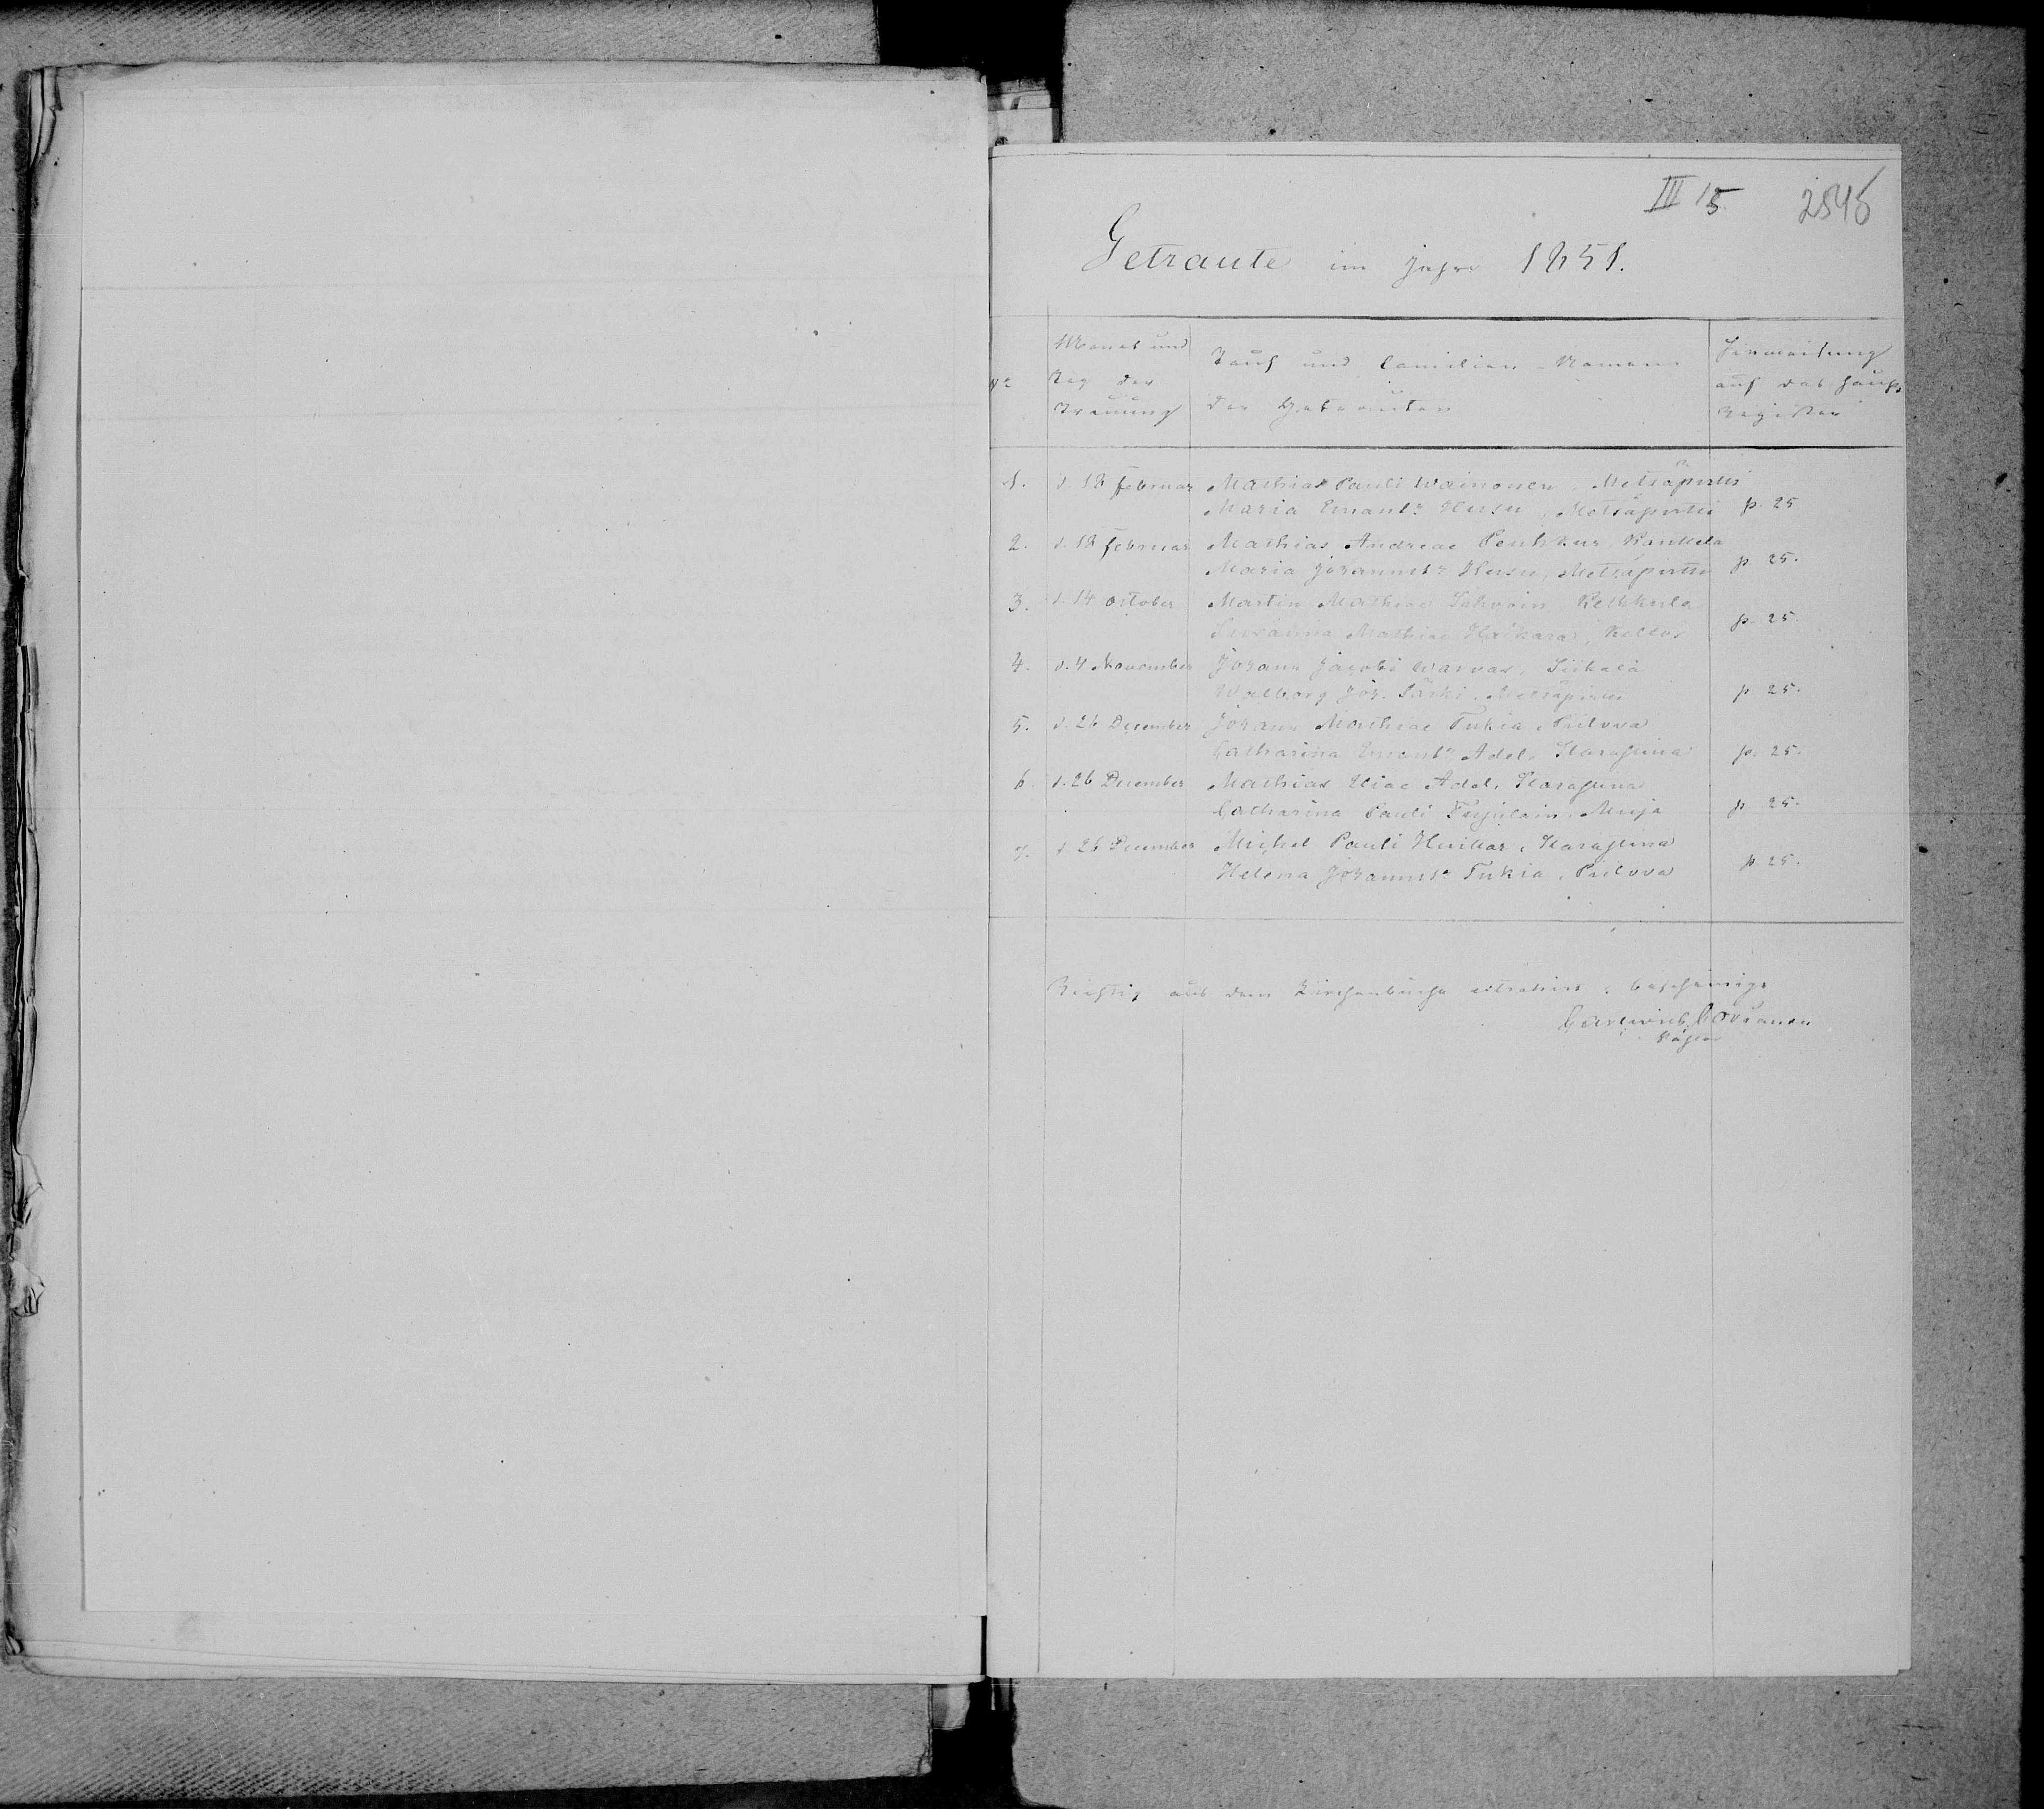 III 15. 2545
Getraute im Jahre 1851.
Nº
Monat und
Tag der
Trauung
Tauf und Familien-Namen
der Getrauten
Hinweisung
auf das Haupt
Register
1. d. 18 Februar Mathias Pauli Wainonen, Metsäpirtti
Maria Emanls Hussu, Metsäpirtti p. 25
2. d. 18 Februar Mathias Andreae Penkkur,
Maria Johannsls Hussu, Metsäpirtti p 25.
3. d. 14 October Martin Mathiae Kelkkula
Susanna Mathiae Haikara, Keltos p. 25.
4. d. 4 November Johann Jacobi Warvas, Siikala
Walborg Joh. Särki, Metsäpirtti p. 25.
5. d. 26 December Johann Mathiae Tukia, Pulova
Catharina Adel, p. 25.
6 d. 26 December Mathias Eliae Adel,
Catharina Pauli Muja p 25.
7. d 26 December Michel Pauli
Helena Johannsls Tukia, Pulova p 25.
Richtig aus dem Kirchenbuche extrahirt, bescheinigt
Pastor